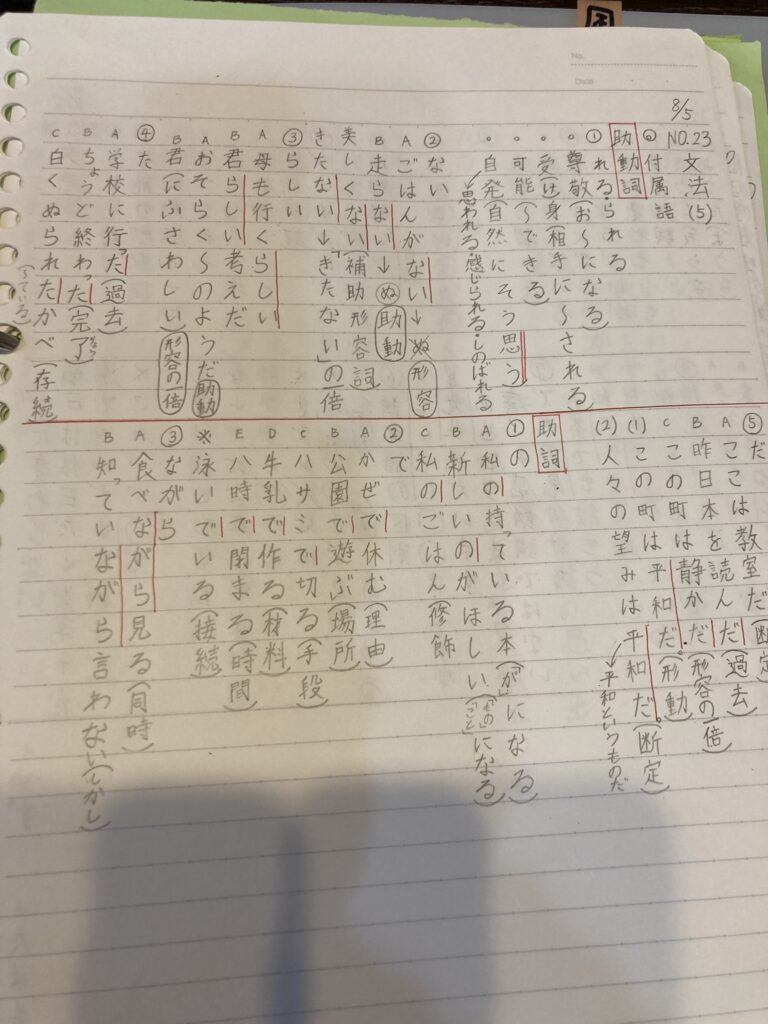 8/5
NO.23 文法(5)
◎付属語
助動詞
①れる・られる
・尊敬(お〜になる)
・受け身(相手に〜される)
・可能(〜できる)
・自発(自然にそう思う)
→思われる・感じられる・しのばれる
②ない
Aごはんがない→ぬ 形容
B走らない→ぬ 助動
美しくない(補助形容詞)
きたない→「きたない」の一部
③らしい
A母も行くらしい
B君らしい考えだ
Aおそらく〜のようだ 助動
B君(に)ふさわしい 形容の一部
④た
A学校に行った(過去)
Bちょうど終わった(完了)
C白くぬられたかべ(存続)
(ている)
⑤だ
Aここは教室だ(断定)
B昨日本を読んだ(過去)
Cこの町は静かだ。(形容の一部
(1)この町は平和だ。(形動)
(2)人々の望みは平和だ(断定)
→平和というものだ
助詞
①の
A私の持っている本(「が」になる)
B新しいのがほしい(「もの」「こと」になる)
C私のごはん(修飾
②で
Aかぜで休む(理由
B公園で遊ぶ(場所
Cハサミで切る(手段
D牛乳で作る(材料
E八時で閉まる(時間
※泳いでいる(接続
③ながら
A食べながら見る(同時)
B知っていながら言わない(しかし)